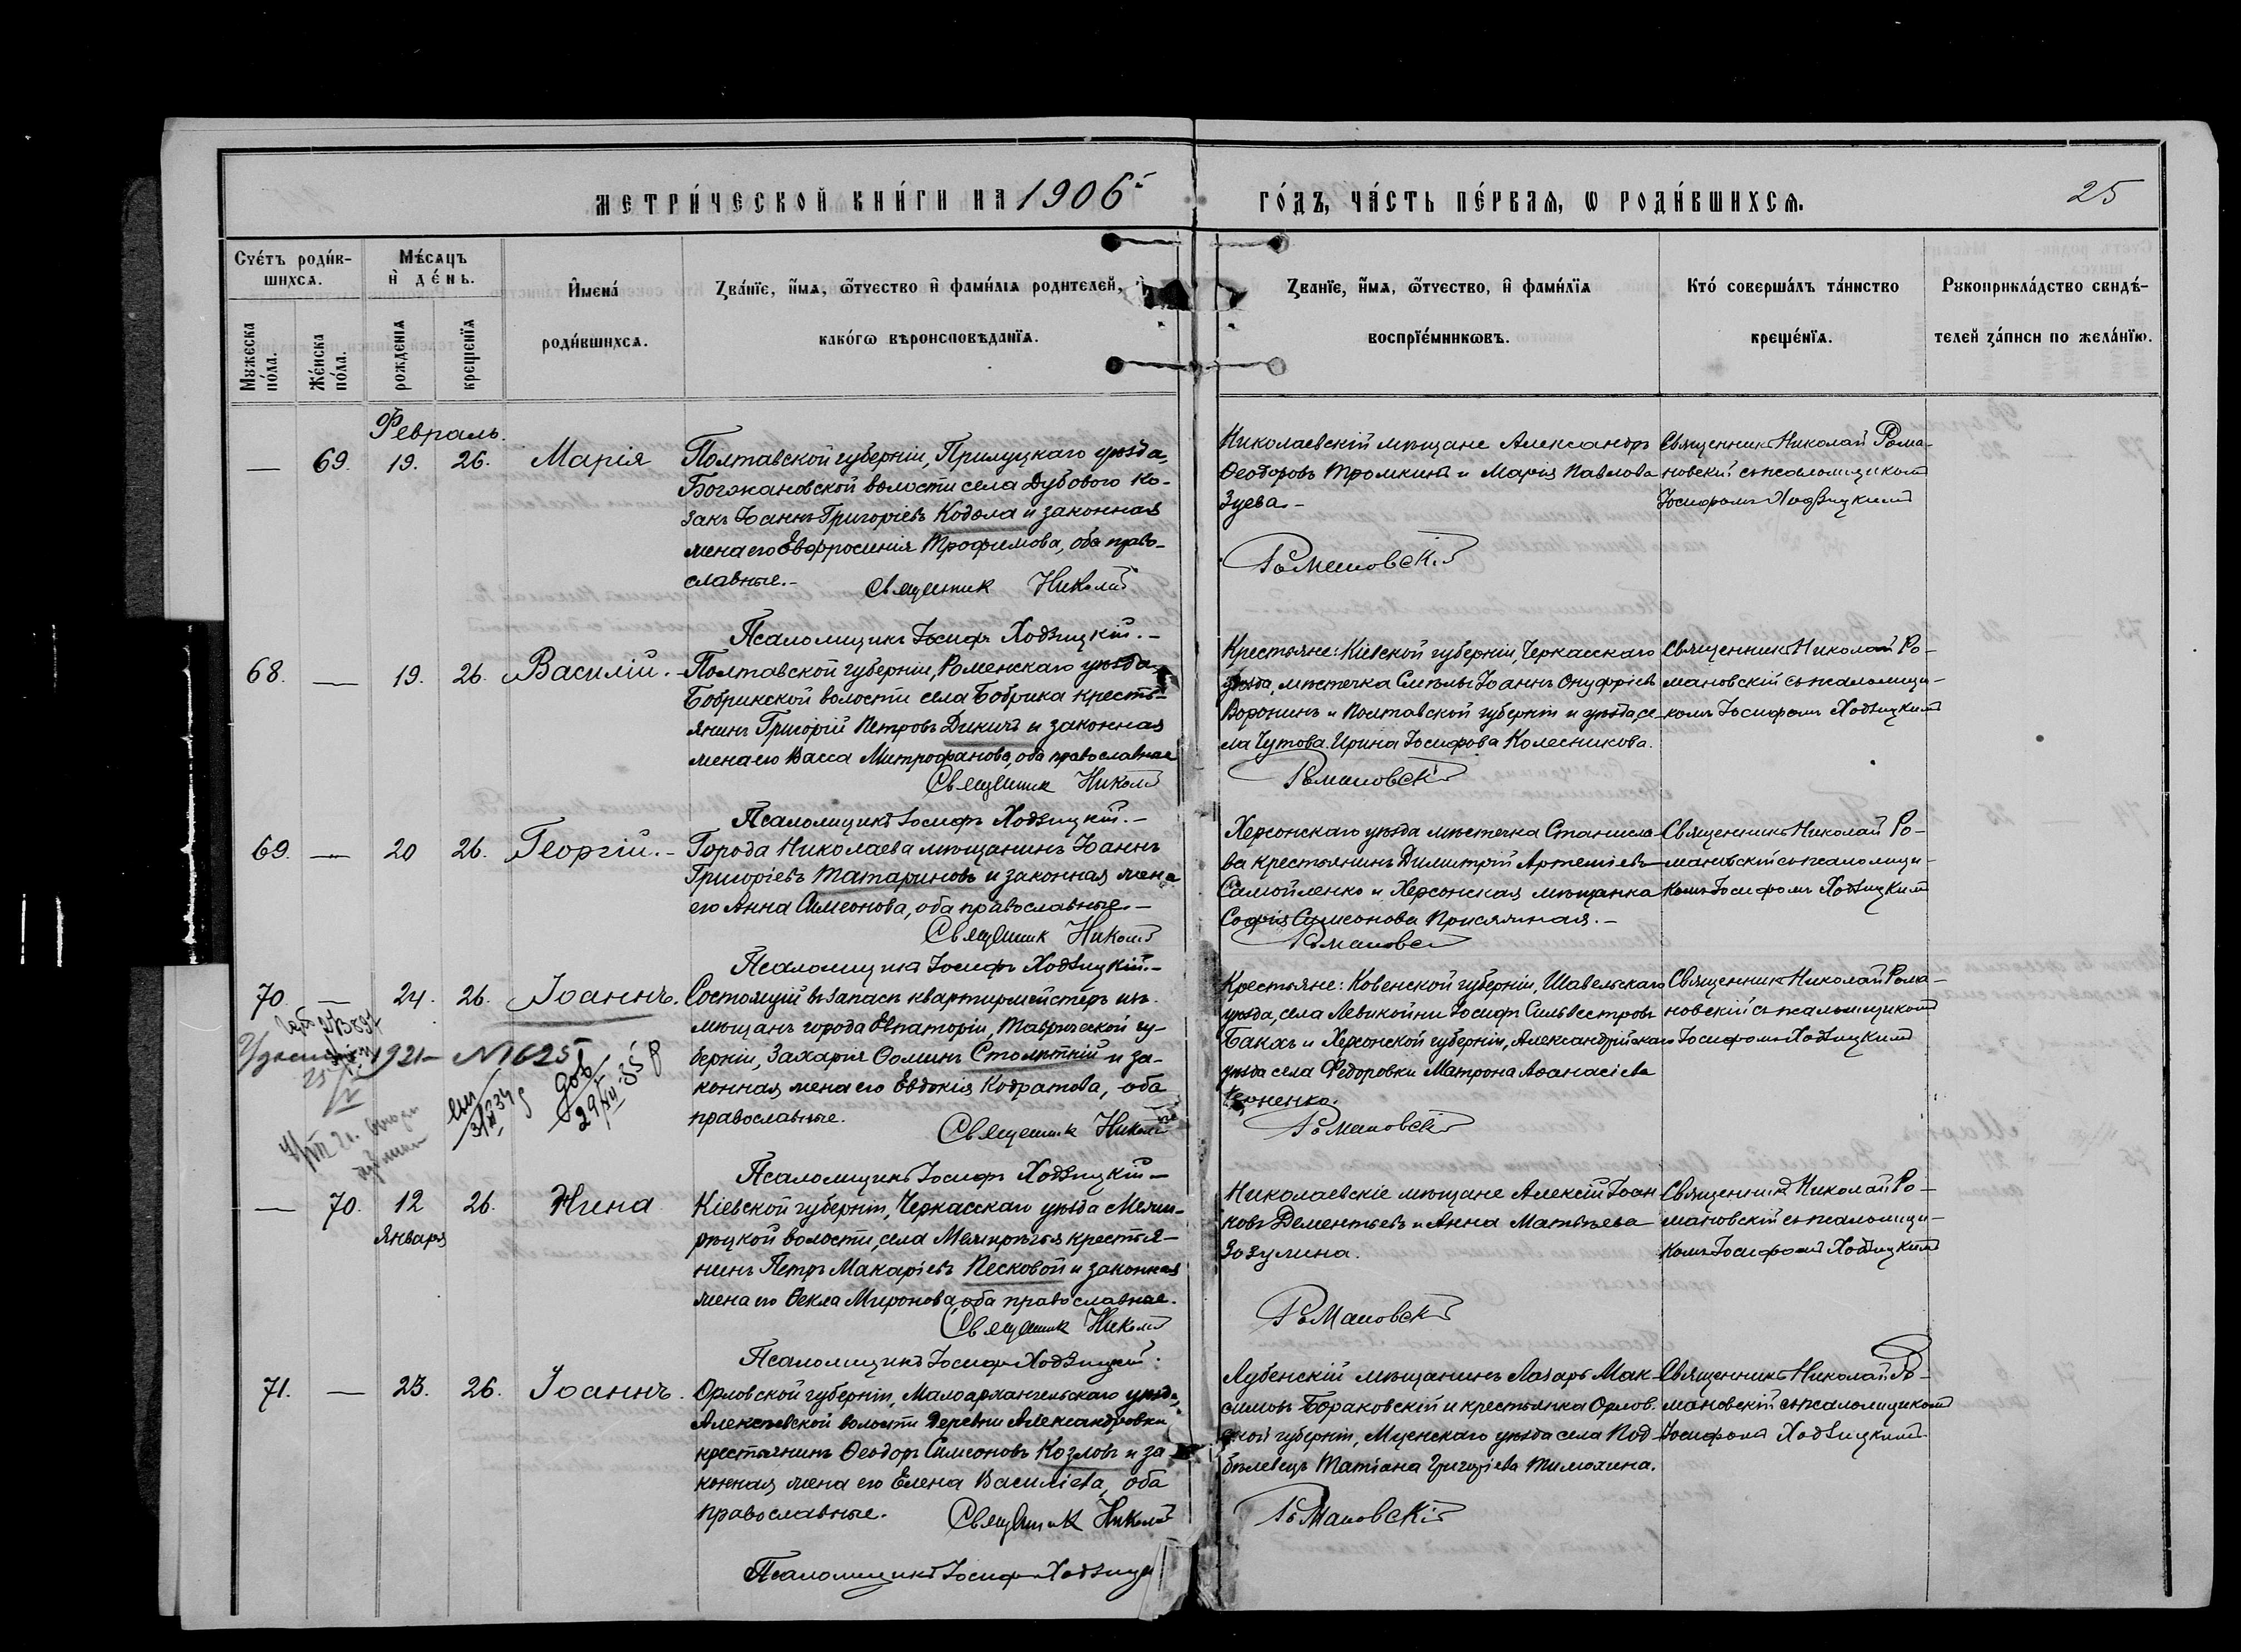 МЕТРИ́ЧЕСКОЙ КНИ́ГИ НА 1906й ГО́ДЪ, ЧА́СТЬ ПЕ́РВАѦ, Ѡ РОДИ́ВШИХСѦ.
25
Счéтъ роди́в-
шихсѧ.
Мѣ́сѧцъ
и҆ де́нь.
Мꙋжеска
по́ла.
Же́нска
по́ла.
рожденїѧ
крещенїѧ
И҆мена́
роди́вшихсѧ.
Ꙁва́нїе, и҆́мѧ, ѻ҆́тчество и҆ фами́лїѧ родителей, и҆
како́гѡ вѣроисповѣданїѧ.
Ꙁванїе, и҆́мѧ, ѻ҆́тчество, и҆ фами́лїѧ
воспрїе́мникѡвъ.
Кто́ соверша́лъ та́инство
креще́нїѧ.
Рꙋкоприкла́дство свидѣ́-
телей ꙁа́писи по жела́нїю.
Февраль.
— 69. 19. 26. Марія
Полтавской губерніи, Прилуцкаго уѣзда,
Богдановской волости села Дубового ко-
закъ Іоаннъ Григоріевъ Кодола и законная
жена его Евфросинія Трофимова, оба право-
славные.-
Священник Николай
Псаломщикъ Іосифъ Ходзицкій.-
Николаевскій мѣщане Александръ
Ѳеодоровъ Тромкинъ и Марія Павлова
Зуева.-
Романовскій
Священникъ Николай Рома-
новскій съ псаломщикомъ
Іосифомъ Ходзицкимъ
68. — 19. 26. Василій.-
Полтавской губерніи, Роменскаго уѣзда
Бобрикской волости села Бобрика кресть-
янинъ Григорій Петровъ Дикичъ и законная
жена его Васса Митрофанова, оба православные
Священник Николай
Псаломщикъ Іосифъ Ходзицкій.-
Крестьяне: Кіевской губерніи, Черкасскаго
уѣзда, мѣстечка Смѣлы Іоаннъ Онуфріевъ
Воронинъ и Полтавской губерніи и уѣзда, се-
ла Чутова. Ирина Іосифова Колесникова.
Романовскій
Священникъ Николай Ро-
мановскій съ псаломщи-
комъ Іосифомъ Ходзицкимъ
69. — 20 26. Георгій.-
Города Николаева мѣщанинъ Іоаннъ
Григоріевъ Татариновъ и законная жена
его Анна Симеонова, оба православные.-
Священник Николай
Псаломщикъ Іосифъ Ходзицкій.-
Херсонскаго уѣзда мѣстечка Станисла-
ва крестьянинъ Димитрій Артеміевъ
Самойленко и Херсонская мѣщанка
Софія Симеонова Присяжная.-
Романовск
Священникъ Николай Ро-
мановскій съ псаломщи-
комъ Іосифомъ Ходзицкимъ
70. — 24. 26. Іоаннъ.
1921- №1625
29/XII 35 р
Состоящій въ запасѣ квартирмейстеръ изъ
мѣщанъ города Евпаторіи, Таврической гу-
берніи, Захарія Ѳоминъ Столѣтній и за-
конная жена его Евдокія Кодратова, оба
православные.
Священник Николай
Псаломщикъ Іосифъ Ходзицкій-
Крестьяне: Ковенской губерніи, Шавельскаго
уѣзда, села Левикойни Іосифъ Сильвестровъ
Бакхъ и Херсонской губерніи, Александрійскаго
уѣзда села Федоровки Матрона Аѳанасіева
Романовскій
Священникъ Николай Рома-
новскій съ псаломщикомъ
Іосифомъ Ходзицкимъ
— 70. 12 26. Нина
Января
Кіевской губерніи, Черкасскаго уѣзда Межи-
рѣцкой волости, села Межирѣчья крестья-
нинъ Петръ Макаріевъ Песковой и законная
жена его Ѳекла Миронова, оба православные.
Священник Николай
Псаломщикъ Іосифъ Ходзицкій.
Николаевскіе мѣщане Алексій Іоан-
новъ Дементьевъ и Анна Матвѣева
Зозулина.
Романовскій
Священникъ Николай Ро-
мановскій съ псаломщи-
комъ Іосифомъ Ходзицкимъ
71. — 23. 26. Іоаннъ.
Орловской губерніи, Малоархангельскаго уѣзда,
Алексѣевской волости деревни Александровки
крестьянинъ Ѳеодоръ Симеоновъ Козловъ и за
конная жена его Елена Василіева, оба
православные.
Священник Николай
Псаломщикъ Іосифъ Ходзицкій
Лубенскій мѣщанинъ Лазарь Мак-
симовъ Бораковскій и крестьянка Орлов-
ской губерніи, Мценскаго уѣзда села Под-
бѣлевецъ Татіана Григоріева Тимохина.
Романовскій
Священникъ Николай Ро-
мановскій съ псаломщикомъ
Іосифомъ Ходзицкимъ